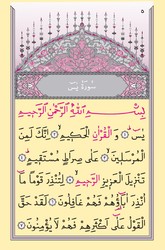 ٥
سُورَةُ يسٓ
بِسْمِ اللّٰهِ الرَّحْمٰنِ الرَّحِيمِ
يسٓ ﴿١﴾ وَالْقُرْاٰنِ الْحَكِيمِ ﴿٢﴾ اِنَّكَ لَمِنَ
الْمُرْسَلِينَ ﴿٣﴾ عَلٰى صِرَاطٍ مُسْتَقِيمٍ ﴿٤﴾
تَنْزِيلَ الْعَزِيزِ الرَّحِيمِ ﴿٥﴾ لِتُنْذِرَ قَوْمًا مَٓا
اُنْذِرَ اٰبَٓاؤُ۬هُمْ فَهُمْ غَافِلُونَ ﴿٦﴾ لَقَدْ حَقَّ
الْقَوْلُ عَلٰٓى اَكْثَرِهِمْ فَهُمْ لَا يُؤْمِنُونَ ﴿٧﴾